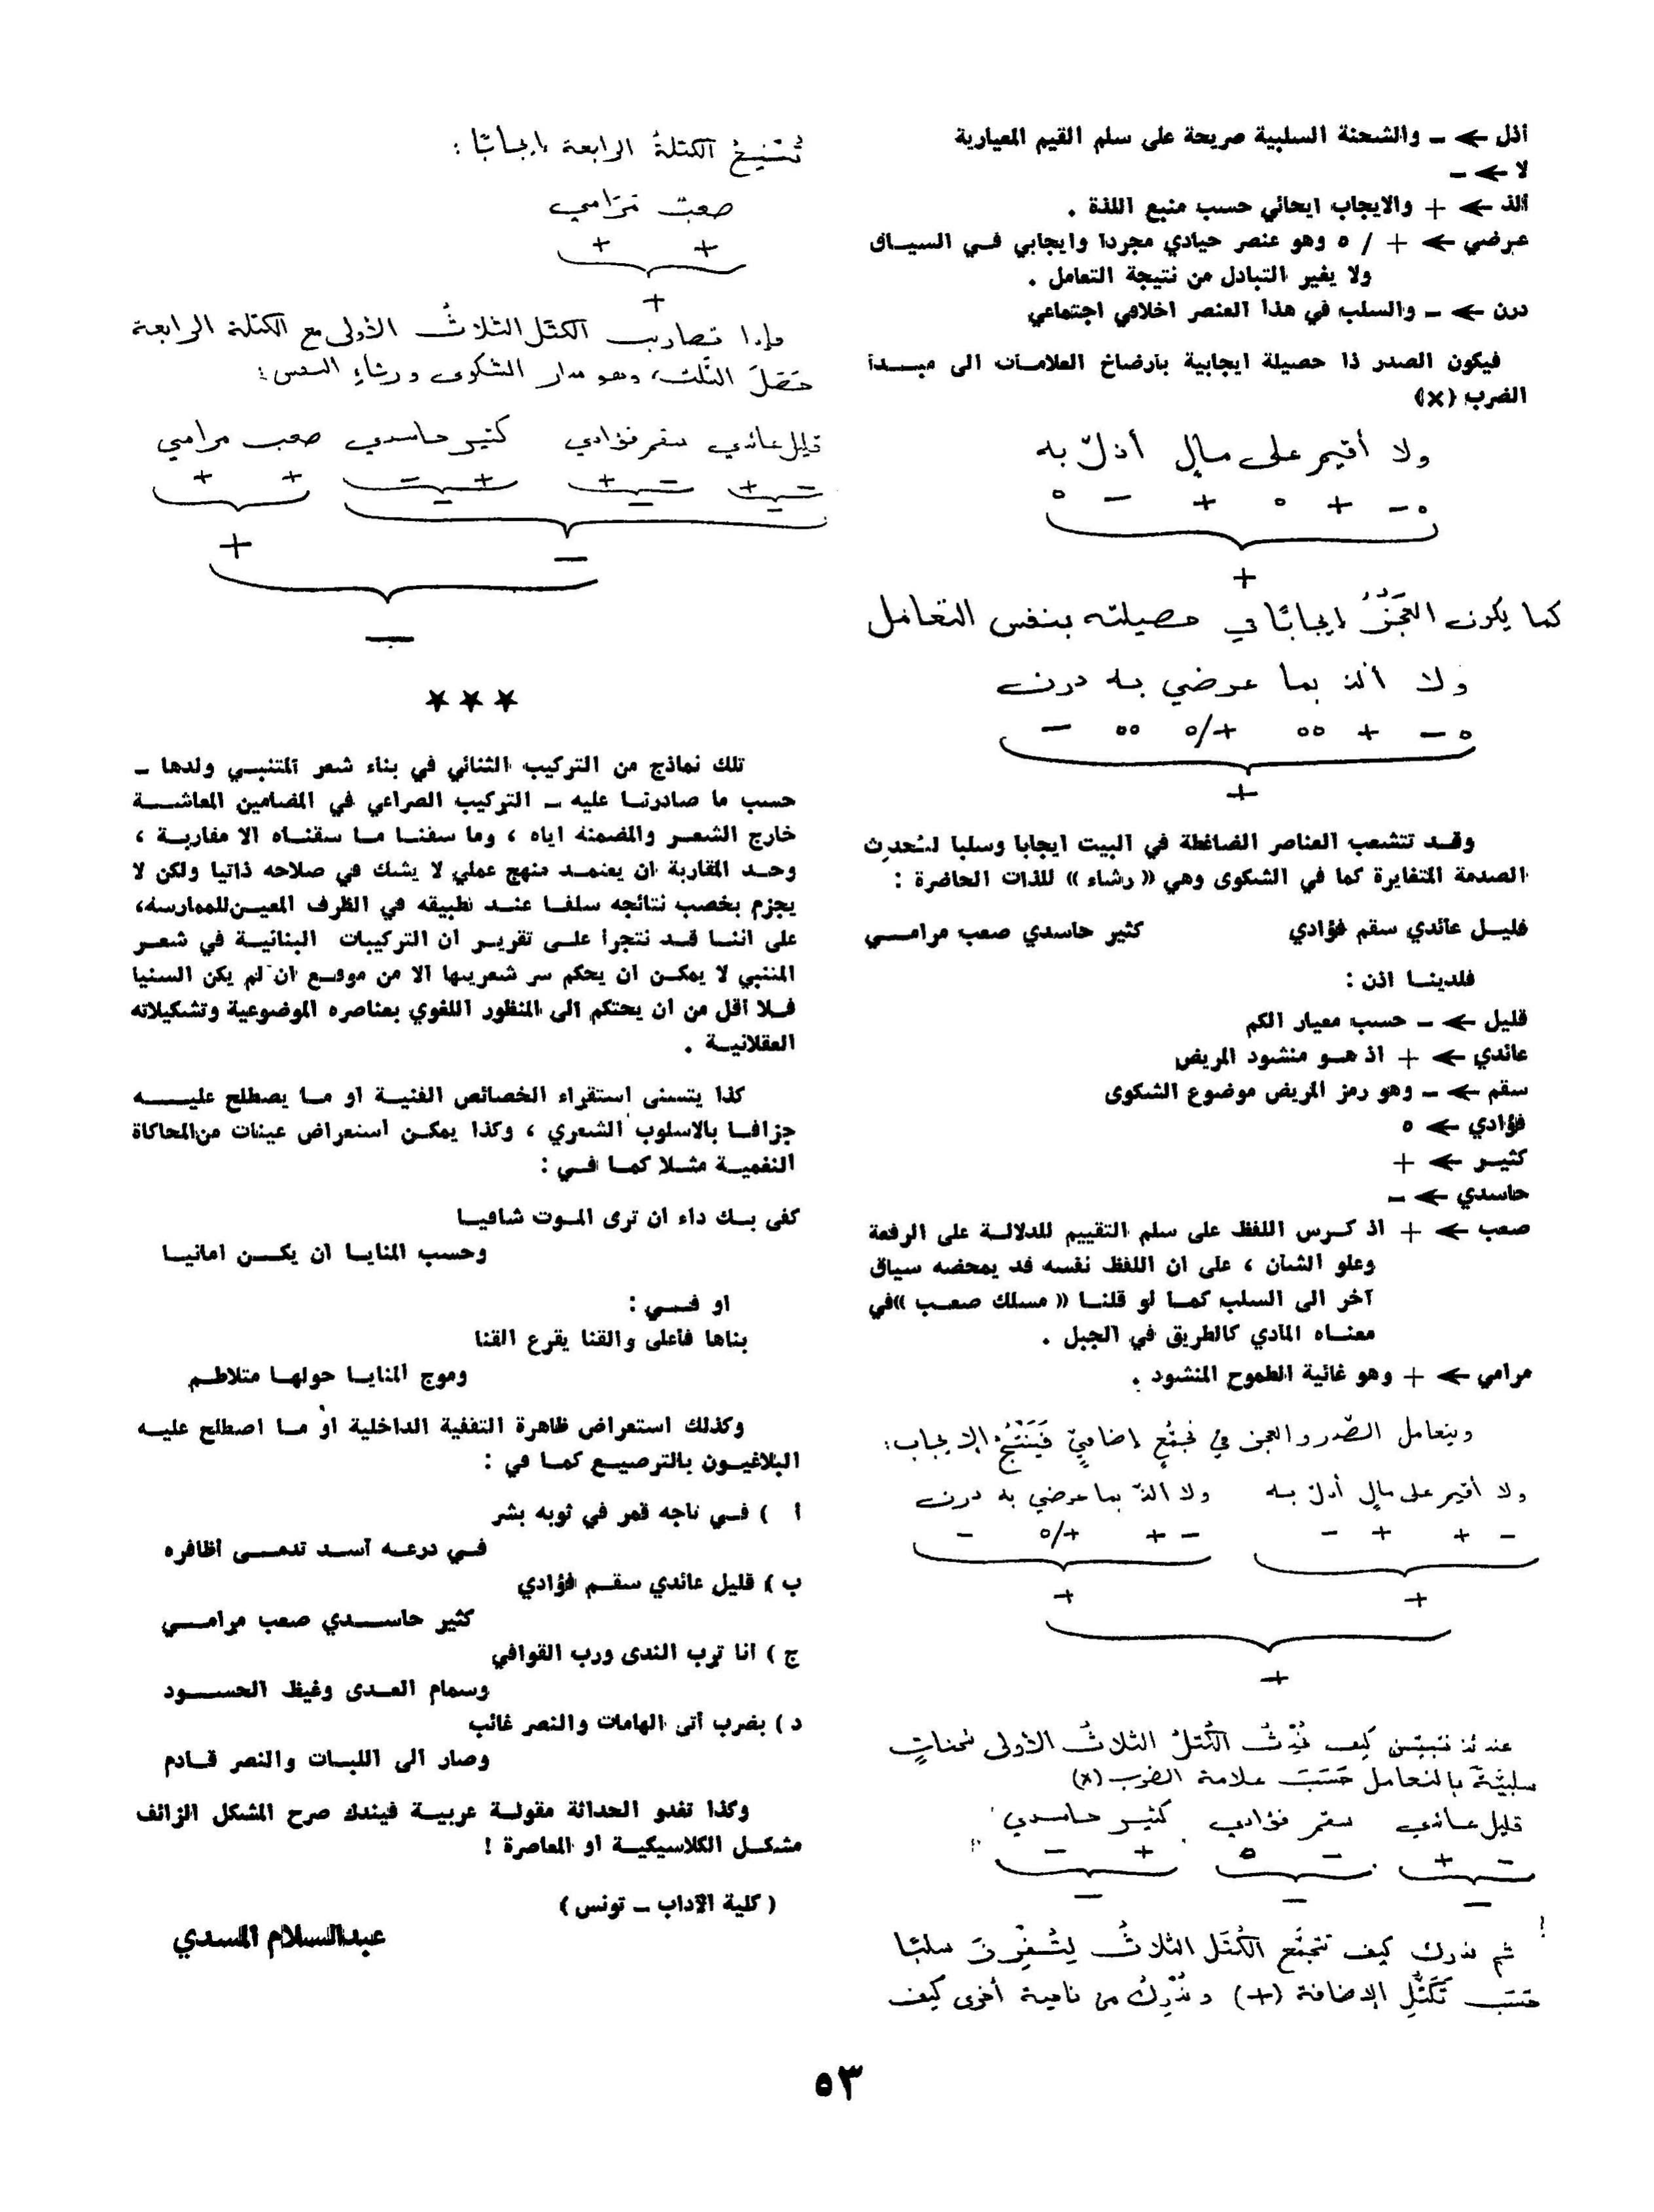 أذل ← ـ والشحنة السلبية صريحة على سلم القيم المعيارية
لا ← ـ
ألذ ← + والايجاب ايحائي حسب منبع اللذة .
عرضي ← + / ٥ وهو عنصر حيادي مجردا وايجابي فـي السيـاق
ولا يغير التبادل من نتيجة التعامل .
درن ← ـ والسلب في هذا العنصر اخلاقي اجتماعي
فيكون الصدر ذا حصيلة ايجابية بارضاخ العلامـات الى مبـدأ
الضرب (×)
ولا أقيم على مالٍ أذلّ به
٥ ـ + ٥ + ـ ٥
+
كما يكون العَجُزُ إيجابًا في حصيلته بنفس التعامل
ولا ألذ بما عرضي به درن
٥ ـ + ٥٥ +/٥ ٥٥ ـ
+
وقـد تتشعب العناصر الضاغطة في البيت ايجابا وسلبا لتحدث
الصدمة المتغايرة كما في الشكوى وهي « رشاء » للذات الحاضرة :
قليـل عائدي سقم فؤادي كثير حاسدي صعب مرامـي
فلدينـا اذن :
قليل ← ـ حسب معيار الكم
عائدي ← + اذ هـو منشود المريض
سقم ← ـ وهو رمز المريض موضوع الشكوى
فؤادي ← ٥
كثيـر ← +
حاسدي ← ـ
صعب ← + اذ كـرس اللفظ على سلم التقييم للدلالـة على الرفعة
وعلو الشأن ، على ان اللفظ نفسه قد يمحضه سياق
آخر الى السلب كمـا لو قلنـا « مسلك صعـب » في
معنـاه المادي كالطريق في الجبل .
مرامي ← + وهو غائية الطموح المنشود .
ويتعامل الصّدر والعجز في تجمّعٍ إضافيٍّ فَيَنْتُجُ الإيجاب:
ولا أقيم على مالٍ أذلّ بـه ولا ألذّ بما عرضي به درن
ـ + + ـ ـ + +/٥ ـ
+ +
+
عندئذ نتبيّن كيف الكُتلُ الثلاثُ الأولى شحناتٍ
سلبيّةً بالتعامل حَسَبَ علامة الضرب (×)
قليل عـائدي سقم فؤادي كثيـر حـاسدي
ـ + ـ ٥ + ـ
ـ ـ ـ
ثم ندرك كيف تتجمّع الكُتَل الثلاثُ سلبًا
حَسَبَ تَكَتُّلِ الإضافة (+) ونُدْرِكُ من ناحية أخرى كيف
الكتلةُ الرابعة إيجابًا :
صعبٌ مَرَامي
+ +
+
فإذا الكتل الثلاثُ الأولى مع الكتلة الرابعة
حَصَلَ السّلب، وهو مدار الشكوى ورثاءِ النفس :
قليل عـائدي سقم فؤادي كثيـر حـاسدي صعب مرامي
ـ + ـ + + ـ + +
ـ ـ ـ
ـ +
ـ
★★★
تلك نماذج من التركيب الثنائي في بناء شعر المتنبـي ولدها ـ
حسب ما صادرنـا عليه ـ التركيب الصراعي في المضامين المعاشـة
خارج الشعـر والمضمنة اياه ، وما سقنـا مـا سقنـاه الا مقاربـة ،
وحـد المقاربة ان يعتمـد منهج عملي لا يشك في صلاحه ذاتيا ولكن لا
يجزم بخصب نتائجه سلفـا عنـد تطبيقه في الظرف المعيـن للممارسة،
على اننـا قـد نتجرأ علـى تقريـر ان التركيبات البنائيـة في شعـر
المتنبي لا يمكـن ان يحكم سر شعريتها الا من موقـع ان لم يكن السنيا
فـلا اقل من ان يحتكم الى المنظور اللغوي بعناصره الموضوعية وتشكيلاته
العقلانيـة .
كذا يتسنى استقراء الخصائص الفنيـة او مـا يصطلح عليـه
جزافـا بالاسلوب الشعري ، وكذا يمكـن استعراض عينات من المحاكاة
النغميـة مثـلا كمـا فـي :
كفى بـك داء ان ترى المـوت شافيـا
وحسب المنايـا ان يكـن امانيـا
او فـي :
بناها فأعلى والقنا يقرع القنا
وموج المنايـا حولهـا متلاطـم
وكذلك استعراض ظاهرة التقفية الداخلية أو مـا اصطلح عليـه
البلاغيـون بالترصيـع كمـا في :
أ ) فـي تاجه قمر في ثوبه بشر
فـي درعـه أسـد تدمـى أظافره
ب ) قليل عائدي سقـم فؤادي
كثير حاسـدي صعب مرامـي
ج ) انا ترب الندى ورب القوافي
وسمام العـدى وغيظ الحسـود
د ) بضرب أتى الهامات والنصر غائب
وصار الى اللبـات والنصر قـادم
وكذا تغدو الحداثة مقولـة عربيـة فيندك صرح المشكل الزائف
مشكـل الكلاسيكيـة أو المعاصرة !
( كلية الآداب ـ تونس )
عبدالسلام المسدي
٥٣